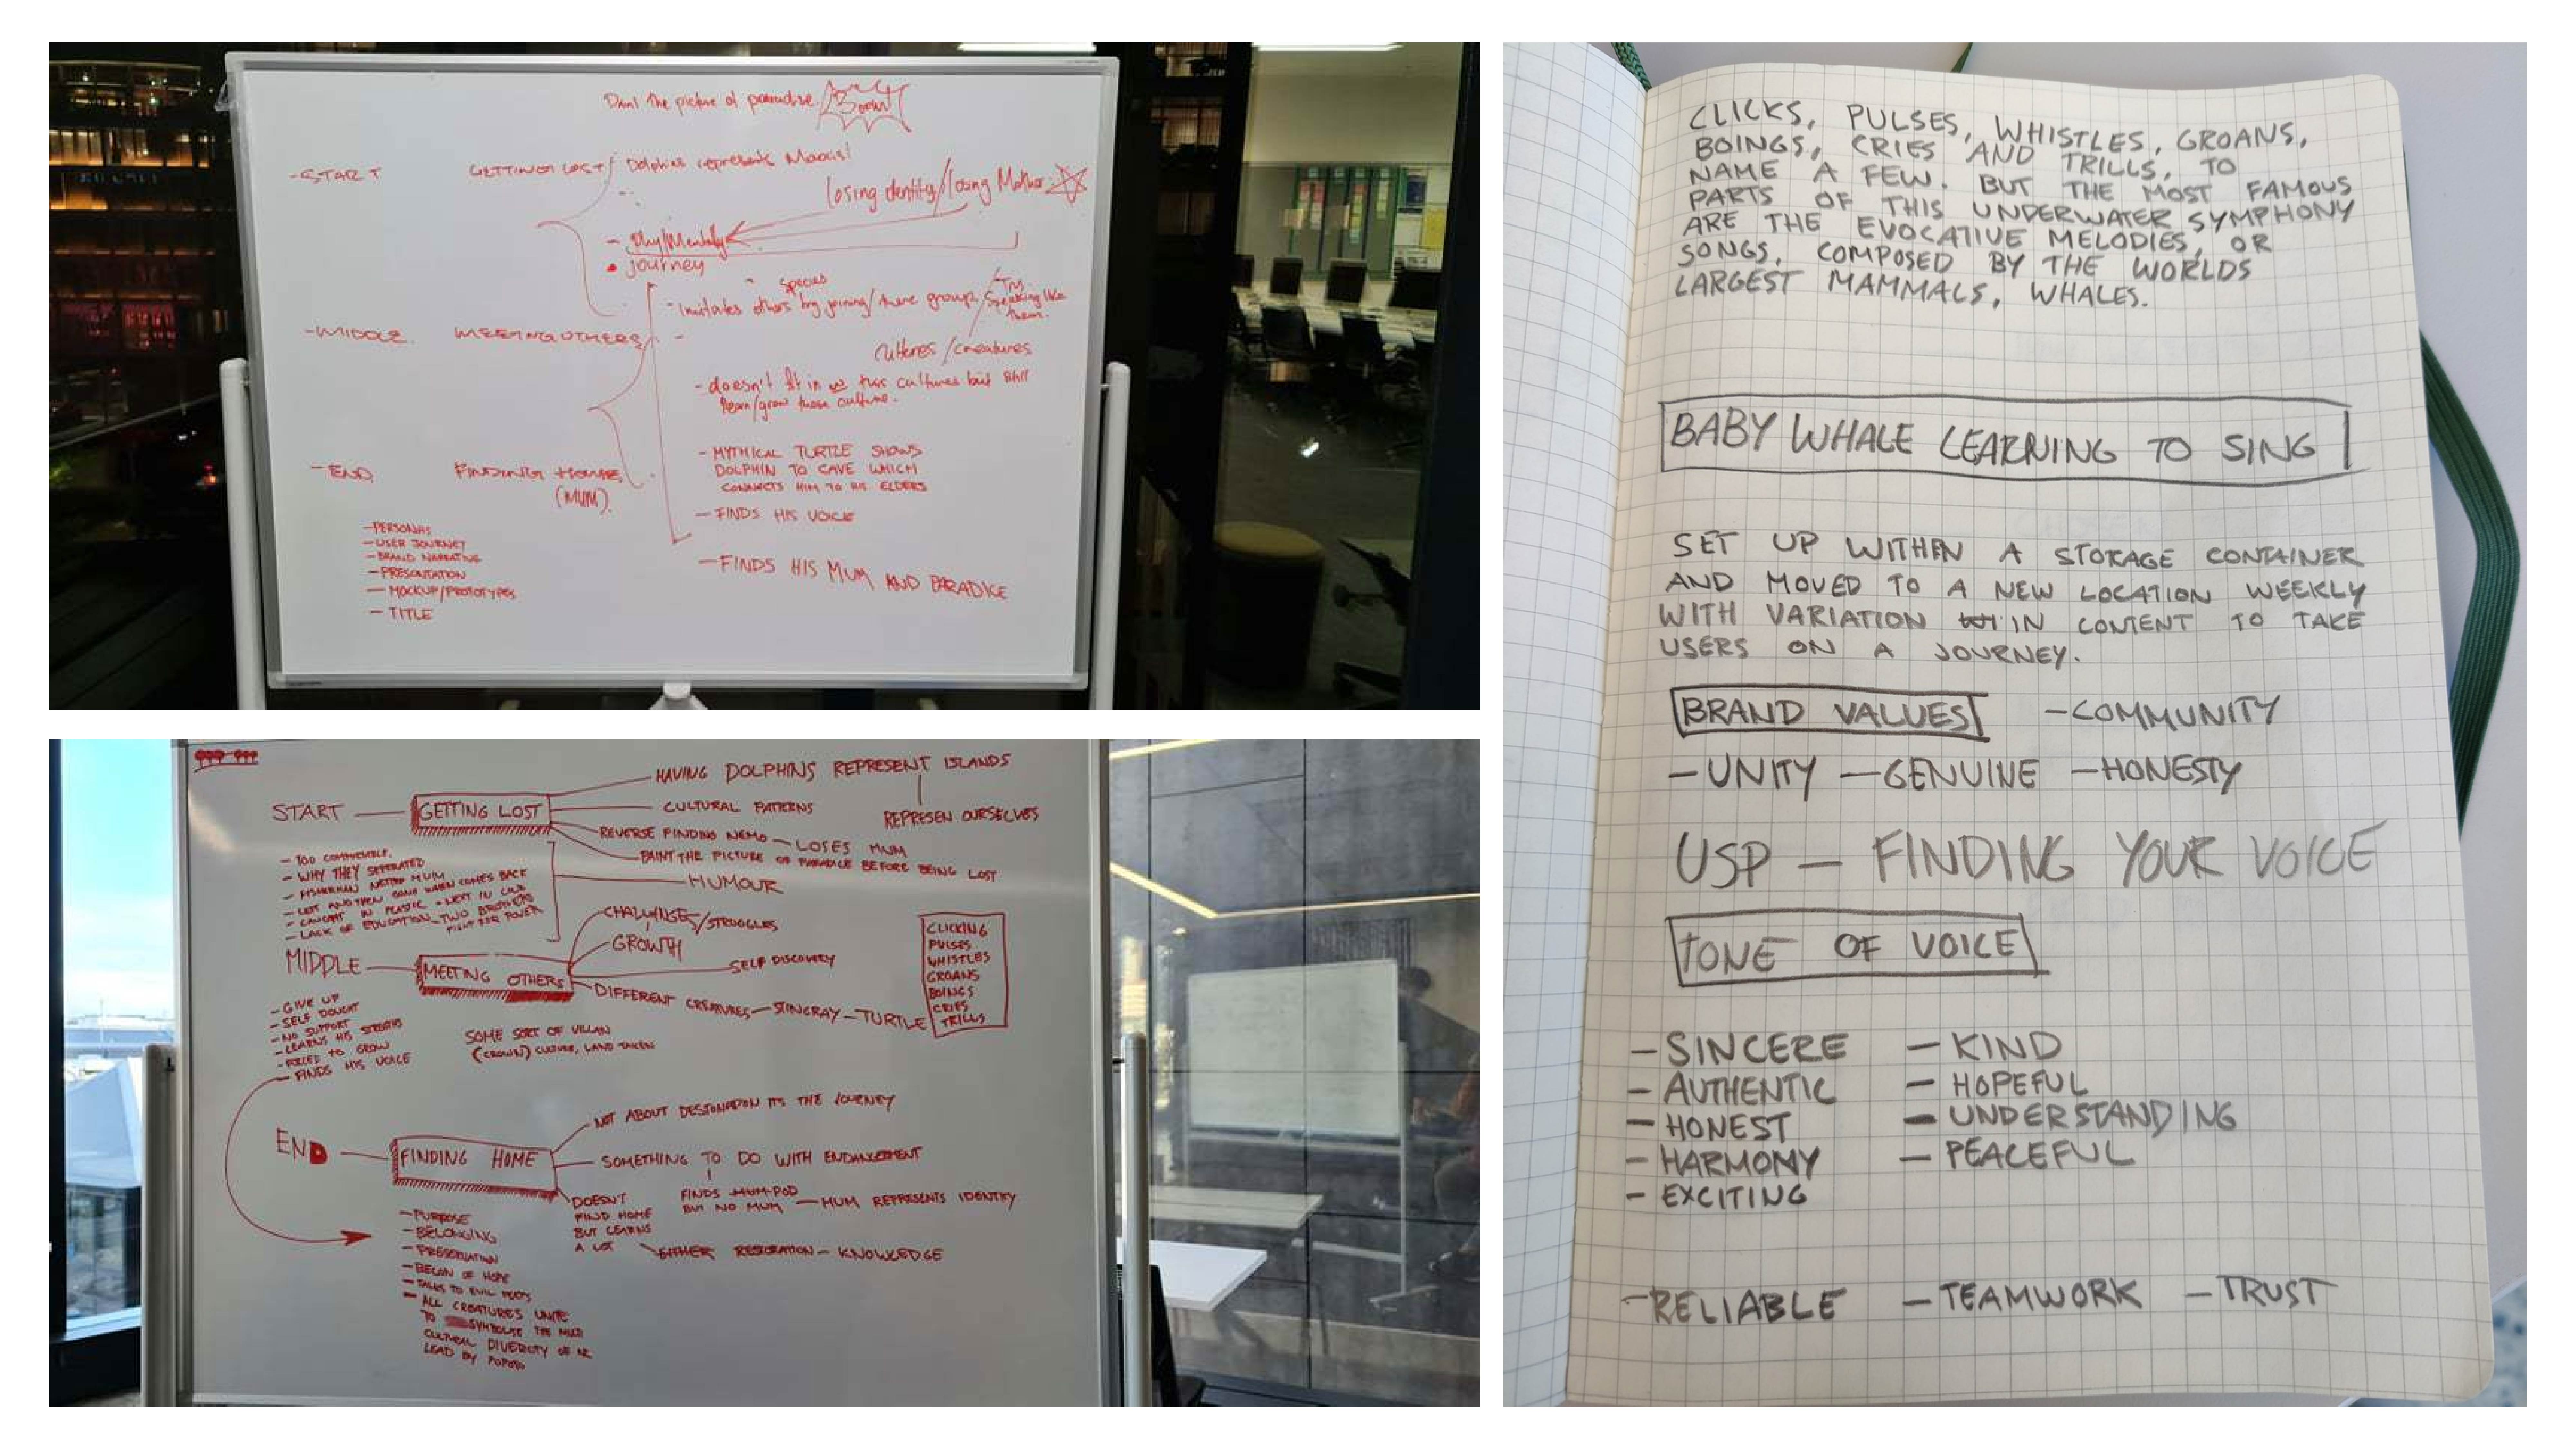 Paint the picture of paradise. Boom!
-START GETTING LOST/ Dolphins represents Maoris!
losing identity/losing Mother
- Phy/Mentally
• journey
species
- imitates others by joining/there group/
Try
speaking like
them.
-MIDDLE. MEETING OTHERS
cultures/creatures
- doesn't fit in w this cultures but still
learn/grow those culture.
- MYTHICAL TURTLE SHOWS
DOLPHIN TO CAVE WHICH
CONNECTS HIM TO HIS ELDERS
-END. FINDING HOME
(MUM).
- FINDS HIS VOICE
- FINDS HIS MUM AND PARADICE
-PERSONAS
-USER JOURNEY
-BRAND NARRATIVE
-PRESENTATION
-MOCKUP/PROTOTYPES
-TITLE
START — GETTING LOST
HAVING DOLPHINS REPRESENT ISLANDS
REPRESEN OURSELVES
CULTURAL PATTERNS
REVERSE FINDING NEMO — LOSES MUM
PAINT THE PICTURE OF PARADICE BEFORE BEING LOST
HUMOUR
- TOO COMFORTABLE.
- WHY THEY SEPERATED
- FISHERMAN NETTED MUM
- LEFT AND THEN GONE WHEN COMES BACK
- CAUGHT IN PLASTIC - NEXT IN LINE
- LACK OF EDUCATION - TWO BROTHERS
FIGHT FOR POWER
MIDDLE — MEETING OTHERS
CHALLENGES/STRUGGLES
GROWTH
SELF DISCOVERY
DIFFERENT CREATURES — STINGRAY — TURTLE
CLICKING
PULSES
WHISTLES
GROANS
BOINGS
CRIES
TRILLS
- GIVE UP
- SELF DOUGHT
- NO SUPPORT
- LEARNS HIS
- FORCED TO GROW
- FINDS HIS VOICE
SOME SORT OF VILLAN
(CROWN) CULTURE, LAND TAKEN
END — FINDING HOME
NOT ABOUT DESTONATION ITS THE JOURNEY
SOMETHING TO DO WITH ENDANGERMENT
FINDS MUM POD
BUT NO MUM — MUM REPRESENTS IDENTITY
DOESN'T
FIND HOME
BUT LEARNS
A LOT
EITHER RESTORATION — KNOWLEDGE
- PURPOSE
- BELONGING
- PRESERVATION
- BECAN OF HOPE
- TALKS TO EVIL
- ALL CREATURES UNITE
TO SYMBOLISE THE MULTI
CULTURAL DIVERCITY OF NZ
LEAD BY POPOTO
CLICKS, PULSES, WHISTLES, GROANS,
BOINGS, CRIES AND TRILLS, TO
NAME A FEW. BUT THE MOST FAMOUS
PARTS OF THIS UNDERWATER SYMPHONY
ARE THE EVOCATIVE MELODIES, OR
SONGS, COMPOSED BY THE WORLDS
LARGEST MAMMALS, WHALES.
BABY WHALE LEARNING TO SING
SET UP WITHIN A STORAGE CONTAINER
AND MOVED TO A NEW LOCATION WEEKLY
WITH VARIATION IN CONTENT TO TAKE
USERS ON A JOURNEY.
BRAND VALUES — COMMUNITY
— UNITY — GENUINE — HONESTY
USP — FINDING YOUR VOICE
TONE OF VOICE
- SINCERE - KIND
- AUTHENTIC - HOPEFUL
- HONEST - UNDERSTANDING
- HARMONY - PEACEFUL
- EXCITING
- RELIABLE - TEAMWORK - TRUST